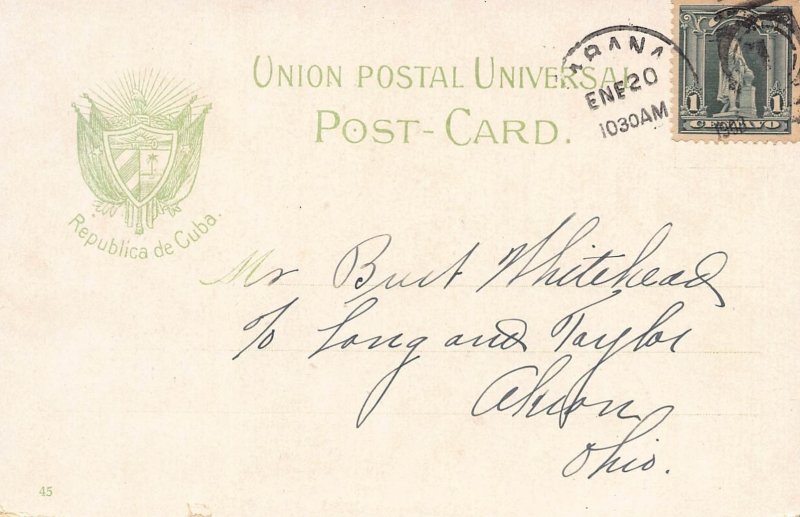 UNION POSTAL UNIVERSAL
POST-CARD.
HABANA
ENE 20
1030AM
1 CENTAVO 1
Republica de Cuba.
Mr Burt Whitehead
℅ Long and Taylor
Akron
Ohio.
45